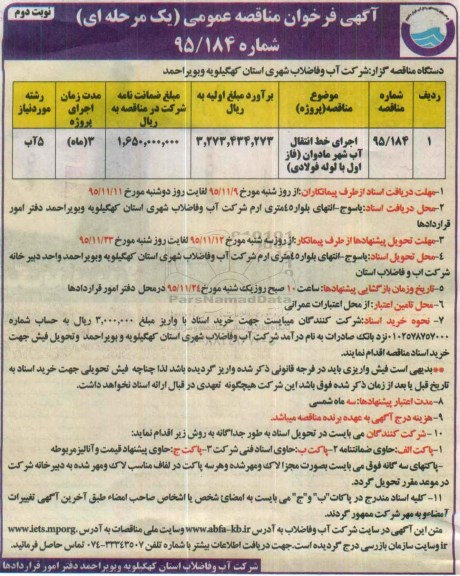 نوبت دوم
آگهی فرخوان مناقصه عمومی (یک مرحله ای)
شماره ۹۵/۱۸۴
دستگاه مناقصه گزار: شرکت آب وفاضلاب شهری استان کهگیلویه وبویراحمد
ردیف شماره مناقصه موضوع مناقصه(پروژه) برآورد مبلغ اولیه به ریال مبلغ ضمانت نامه شرکت در مناقصه به ریال مدت زمان اجرای پروژه رشته موردنیاز
۱ ۹۵/۱۸۴ اجرای خط انتقال آب شهر مادوان (فاز اول با لوله فولادی) ۳,۲۷۳,۴۳۴,۲۷۳ ۱,۶۵۰,۰۰۰,۰۰۰ ۳(ماه) ۵آب
۱-مهلت دریافت اسناد ازطرف پیمانکاران:از روز شنبه مورخ ۹۵/۱۱/۹ لغایت روز دوشنبه مورخ ۹۵/۱۱/۱۱
۲-محل دریافت اسناد:یاسوج-انتهای بلوار۴۵متری ارم شرکت آب وفاضلاب شهری استان کهگیلویه وبویراحمد دفتر امور قراردادها
۳-مهلت تحویل پیشنهادها از طرف پیمانکار:از روزسه شنبه مورخ ۹۵/۱۱/۱۲ لغایت روز شنبه مورخ ۹۵/۱۱/۲۳
۴-محل تحویل اسناد:یاسوج-انتهای بلوار۴۵متری ارم شرکت آب وفاضلاب شهری استان کهگیلویه وبویراحمد واحد دبیر خانه شرکت آب و فاضلاب استان
۵-تاریخ وزمان بازگشایی پیشنهادها: ساعت ۱۰ صبح روزیک شنبه مورخ ۹۵/۱۱/۲۴ درمحل دفتر امور قراردادها
۶-محل تامین اعتبار: از محل اعتبارات عمرانی
۷- نحوه خرید اسناد:شرکت کنندگان میبایست جهت خرید اسناد با واریز مبلغ ۳,۰۰۰,۰۰۰ ریال به حساب شماره ۰۱۰۲۵۷۸۷۵۷۰۰۰ نزد بانک صادرات به نام درآمد شرکت آب وفاضلاب شهری استان کهگیلویه وبویراحمد وتحویل فیش جهت خرید اسناد مناقصه اقدام نمایند.
**بدیهی است فیش واریزی باید در فرجه قانونی ذکر شده واریز گردیده باشد لذا چناچه فیش تحویلی جهت خرید اسناد به تاریخ قبل یا بعد از زمان ذکر شده فوق باشد این شرکت هیچگونه تعهدی در قبال ارائه اسناد نخواهد داشت.
۸-مدت اعتبار پیشنهادها: سه ماه شمسی
۹-هزینه درج آگهی به عهده برنده مناقصه میباشد.
۱۰-شرکت کنندگان می بایست در تحویل اسناد به طور جداگانه به روش زیر اقدام نمایند:
۱-پاکت الف: حاوی ضمانتنامه ۲-پاکت ب: حاوی اسناد فنی شرکت ۳-پاکت ج: حاوی پیشنهاد قیمت وآنالیزمربوطه
-پاکتهای سه گانه فوق می بایست بصورت مجزا لاک ومهرشده وهرسه پاکت در لفاف مناسب لاک ومهرشده به دبیرخانه شرکت در موعد مقرر تحویل گردد.
۱۱-کلیه اسناد مندرج در پاکات "ب" و "ج" می بایست به امضای شخص یا اشخاص صاحب امضاء طبق آخرین آگهی تغییرات امضاء و به مهر شرکت ممهور گردند.
متن این آگهی در سایت شرکت آب وفاضلاب به آدرس www.abfa-kb.ir وسایت ملی مناقصات به آدرس www.iets.mporg.ir وسایت سازمان بازرسی درج گردیده است.جهت دریافت اطلاعات بیشتر با شماره تلفن ۳۳۳۴۳۵۰۷-۰۷۴ تماس حاصل فرمائید.
شرکت آب وفاضلاب استان کهگیلویه وبویراحمد دفتر امور قراردادها
ParsNamadData